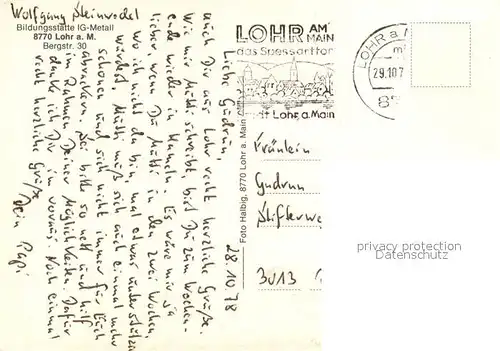 Wolfgang Steinwedel
Bildungsstätte IG-Metall
8770 Lohr a. M.
Bergstr. 30
28.10.78
Liebe Gudrun,
auch Dir aus Lohr recht herzliche Grüße.
Wie mir Mutti schreibt, bist Du zum Wochen-
ende wieder in Hameln. Es wäre mir sehr
lieber, wenn Du Mutti in den zwei Wochen,
wo ich nicht da bin, mal etwas unterstützen
würdest. Mutti muß sich auch einmal mehr
schonen und sich nicht immer für Euch
abrackern. Sei bitte so nett und hilf
im Rahmen Deiner Möglichkeiten. Dafür
danke ich Dir im voraus. Noch einmal
recht herzliche Grüße
Dein Papi
Foto Halbig, 8770 Lohr a. Main
LOHR AM MAIN
das Spessarttor
Stadt Lohr a. Main
LOHR a
29.10.7
Fräulein
Gudrun
Stifterwe
3013
privacy protection
Datenschutz